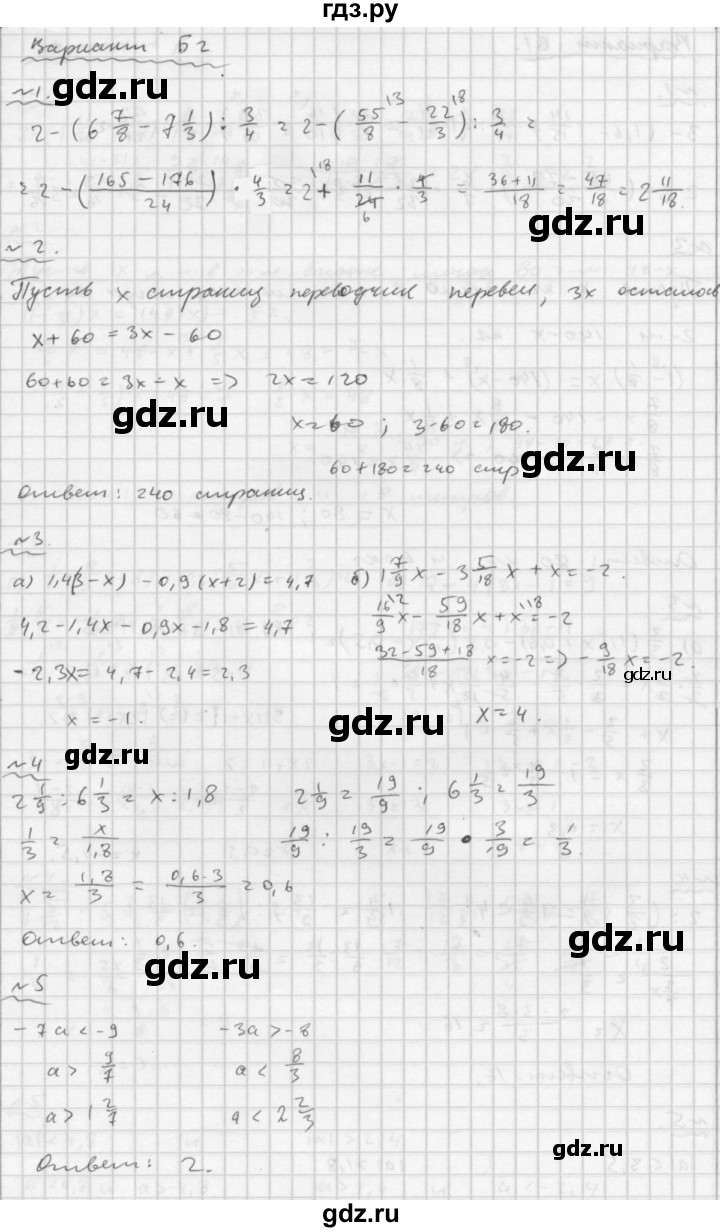 гдз.ру
Вариант Б2
№1.
2-(6 7/8 - 7 1/3) : 3/4 = 2-(55/8 \13 - 22/3 \18) : 3/4 =
= 2-((165-176)/24) · 4/3 = 2 \18 + 11/24 6 · 4/3 = (36+11)/18 = 47/18 = 2 11/18.
gdz.ru
gdz.ru
№2.
Пусть x страниц переводчик перевел, 3x осталось
x+60=3x-60
60+60=3x-x => 2x=120
gdz.ru
x=60; 3·60=180.
60+180=240 стр
gdz.ru
Ответ: 240 страниц.
№3.
а) 1,4(3-x) -0,9(x+2)=4,7
б) 1 7/9 x - 3 5/18 x + x = -2.
4,2-1,4x-0,9x-1,8=4,7
16/9 \2 x - 59/18 x + x \18 = -2
-2,3x=4,7-2,4=2,3
(32-59+18)/18 x=-2 => -9/18 x=-2.
gdz.ru
x=-1.
gdz.ru
x=4.
№4
gdz.ru
2 1/9 : 6 1/3 = x : 1,8
2 1/9 = 19/9 ; 6 1/3 = 19/3
1/3 = x/1,8
19/9 : 19/3 = 19/9 · 3/19 = 1/3.
x = 1,8/3 = (0,6·3)/3 = 0,6
Ответ: 0,6.
gdz.ru
gdz.ru
№5
-7a<-9
-3a>-8
a > 9/7
a < 8/3
a > 1 2/7
a < 2 2/3
gdz.ru
Ответ: 2.
gdz.ru